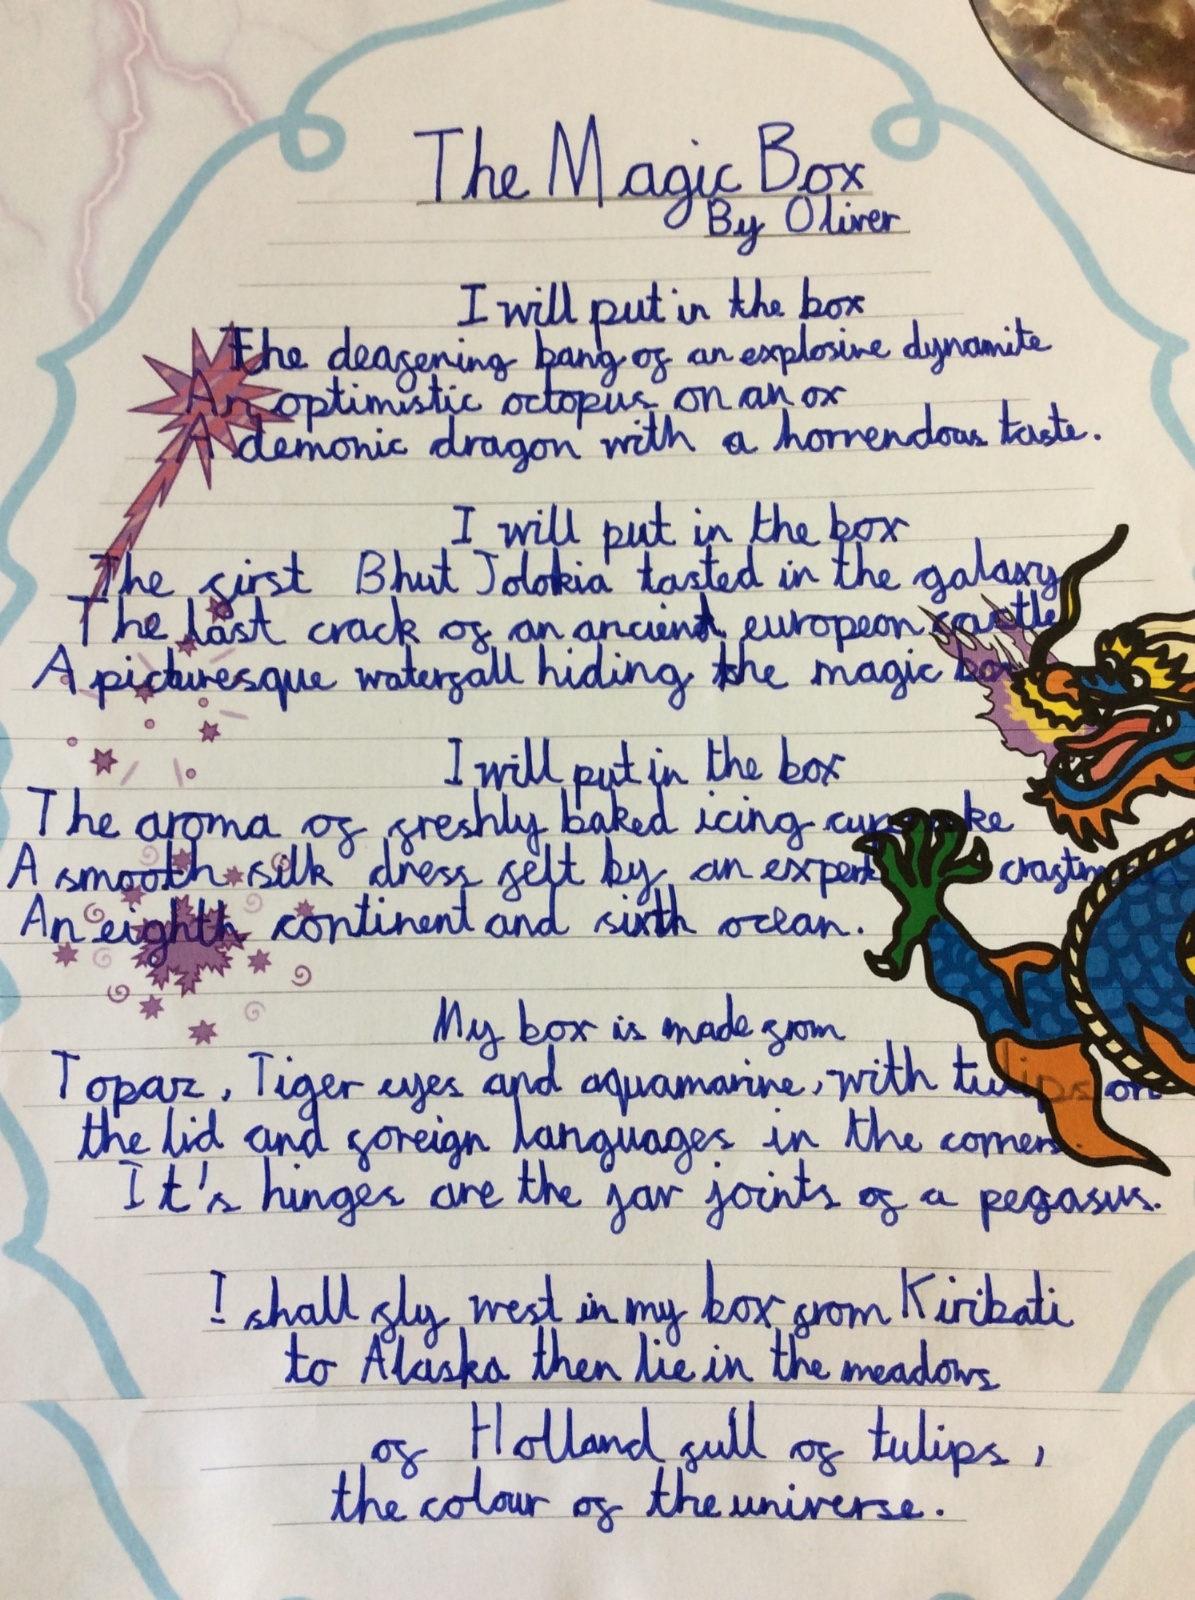 The Magic Box
By Oliver
I will put in the box
The deafening bang of an explosive dynamite
An optimistic octopus on an ox
A demonic dragon with a horrendous taste.
I will put in the box
The first Bhut Jolokia tasted in the galaxy
The last crack of an ancient european castle
A picturesque waterfall hiding the magic box
I will put in the box
The aroma of freshly baked icing cupcake
A smooth silk dress felt by an expert
An eighth continent and sixth ocean.
My box is made from
Topaz, Tiger eyes and aquamarine, with tulips on
the lid and foreign languages in the corners.
It's hinges are the jar joints of a pegasus.
I shall fly west in my box from Kiribati
to Alaska then lie in the meadows
of Holland full of tulips,
the colour of the universe.